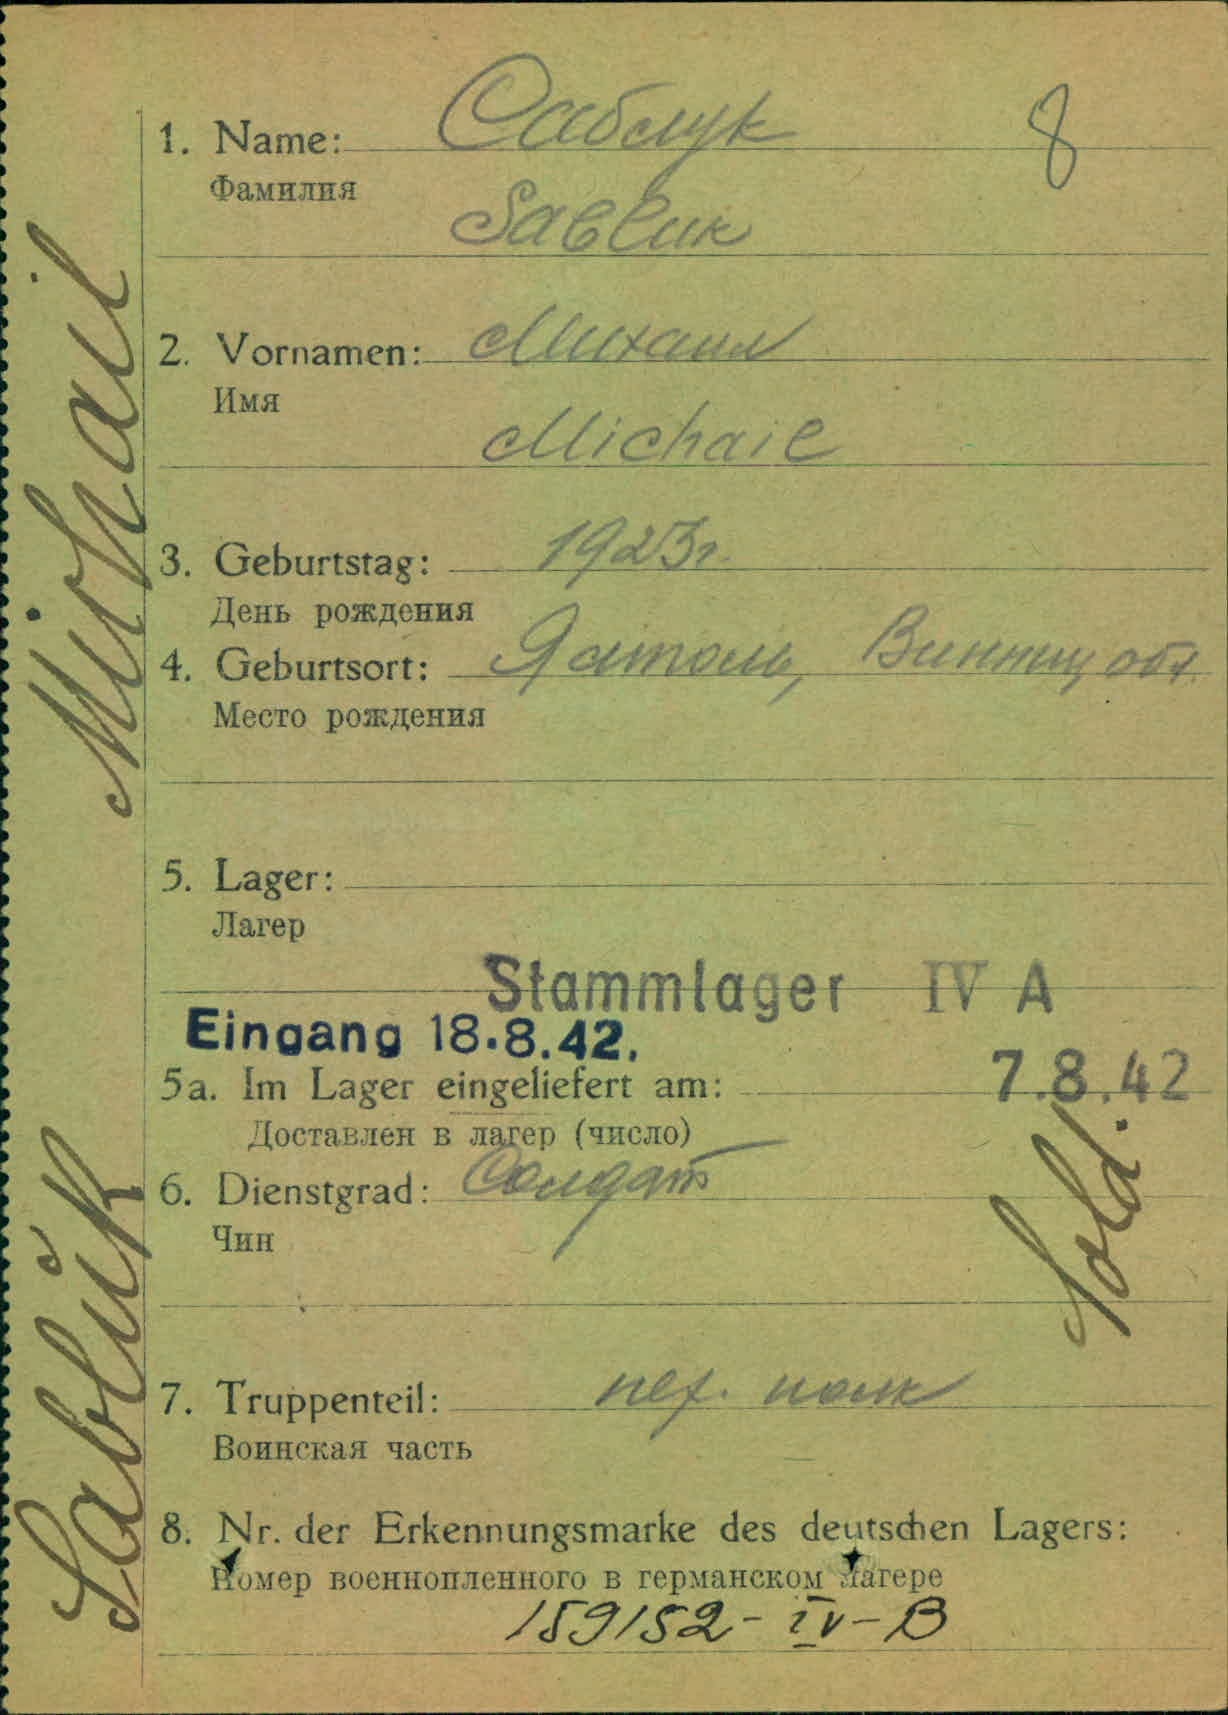 1. Name: Саблук 8
Фамилия
Savluk
2. Vornamen: Михаил
Имя
Michail
3. Geburtstag: 1923г.
День рождения
4. Geburtsort: Винниц обл.
Место рождения
5. Lager:
Лагер
Stammlager IV A
Eingang 18.8.42.
5a. Im Lager eingeliefert am: 7.8.42
Доставлен в лагер (число)
6. Dienstgrad: Солдат Sold.
Чин
7. Truppenteil: пех. полк
Воинская часть
8. Nr. der Erkennungsmarke des deutschen Lagers:
Номер военнопленного в германском лагере
159152-IV-B
Sablŭk Michail